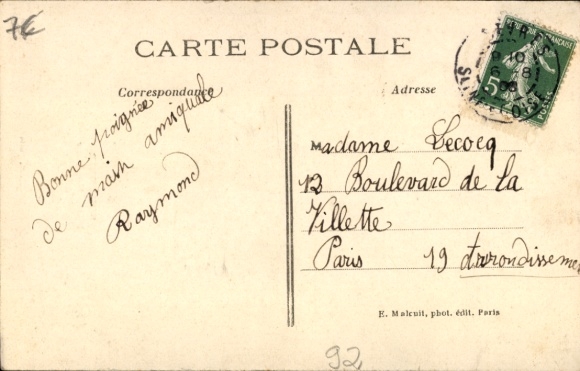 7€
CARTE POSTALE
Correspondance
Adresse
Bonne poignée
de main amicale
Raymond
Madame Lecocq
12 Boulevard de la
Villette
Paris 19 Arrondissemen
E. Malcuit, phot. édit. Paris
92